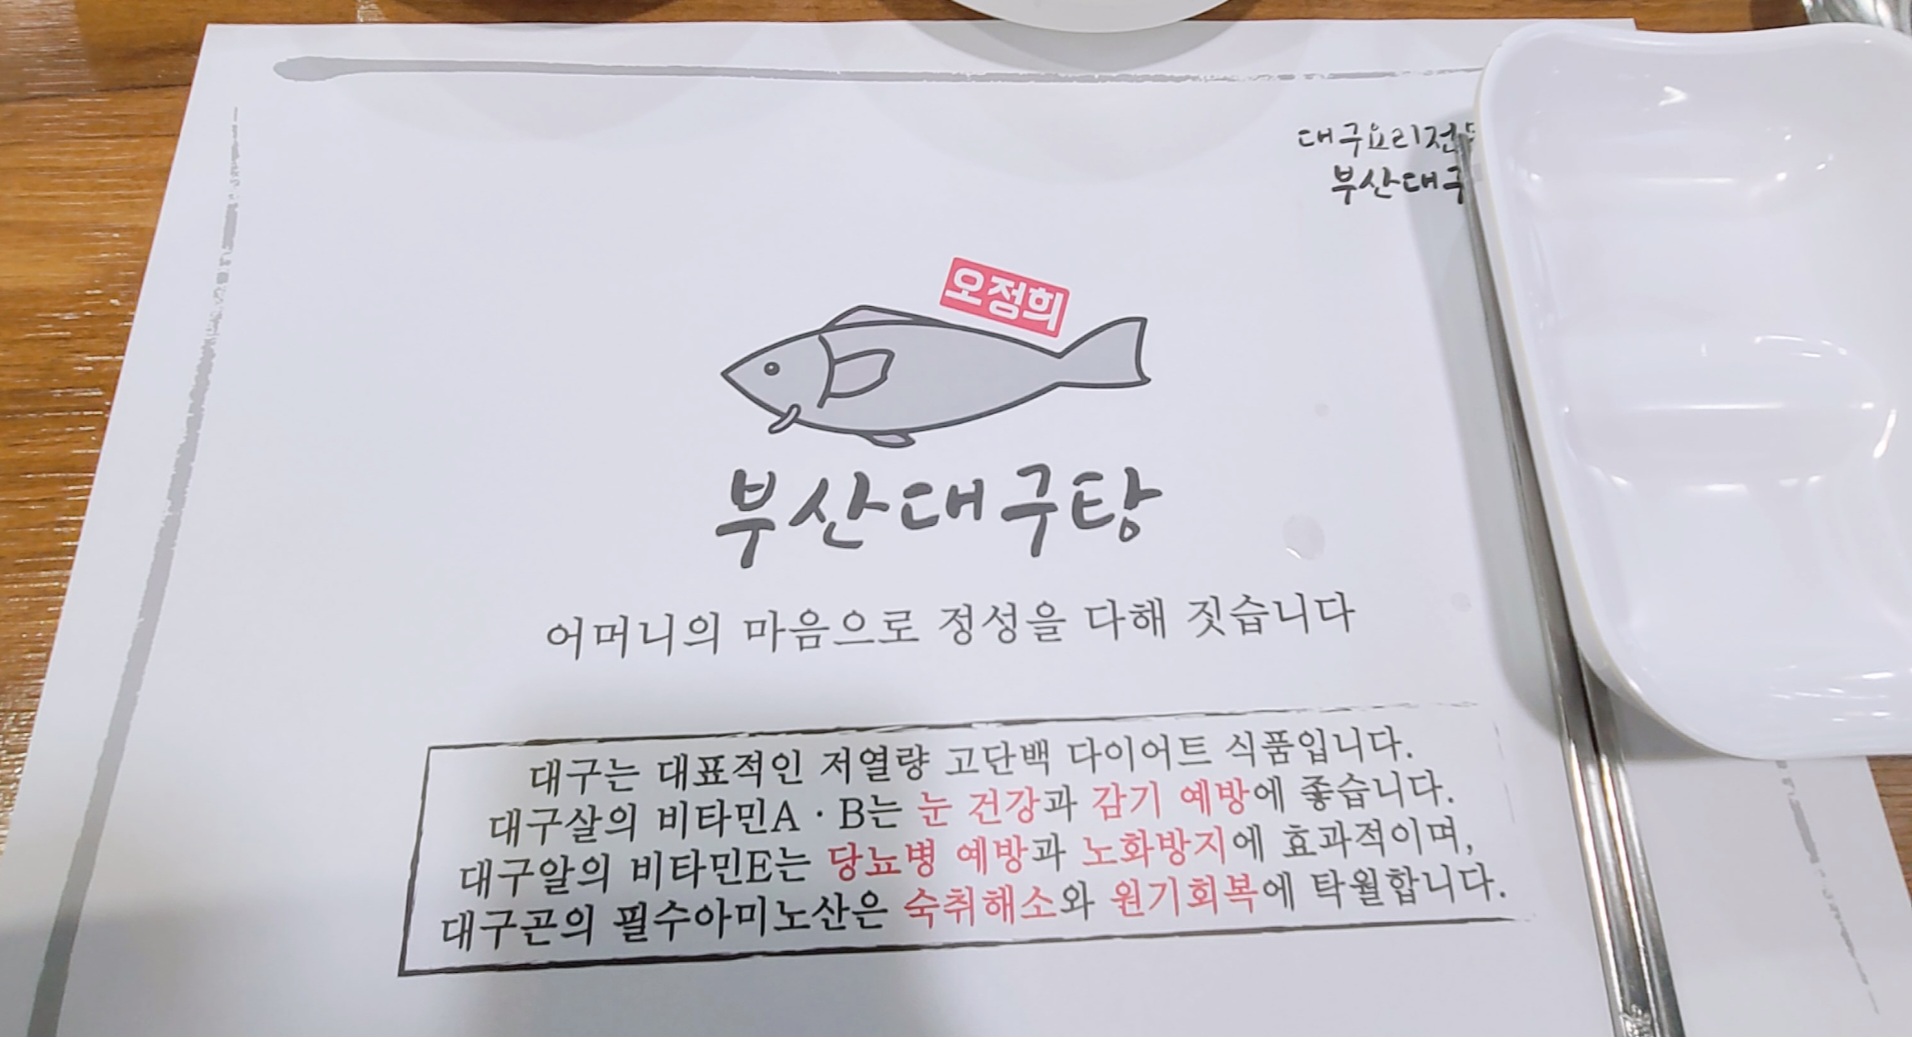 대구요리전
부산대구
오정희
부산대구탕
어머니의 마음으로 정성을 다해 짓습니다
대구는 대표적인 저열량 고단백 다이어트 식품입니다.
대구살의 비타민A · B는 눈 건강과 감기 예방에 좋습니다.
대구알의 비타민E는 당뇨병 예방과 노화방지에 효과적이며,
대구곤의 필수아미노산은 숙취해소와 원기회복에 탁월합니다.